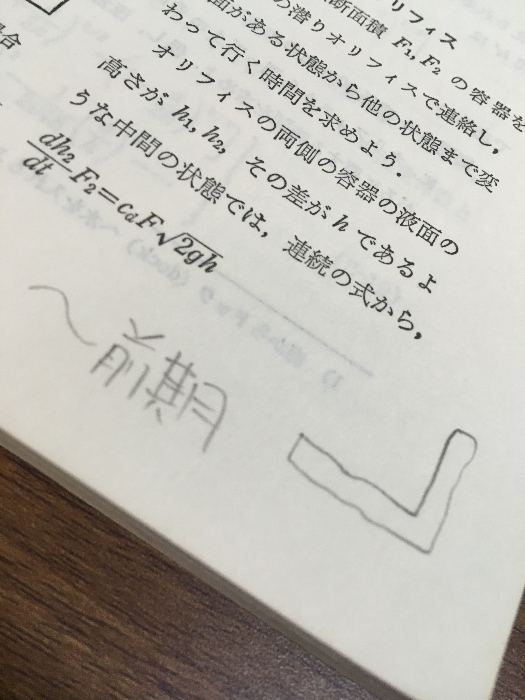 リフィス
断面積 F₁, F₂ の容器を
の潜りオリフィスで連絡し,
面がある状態から他の状態まで変
わって行く時間を求めよう.
オリフィスの両側の容器の液面の
高さが h₁, h₂, その差が h であるよ
うな中間の状態では, 連続の式から,
dh₂/dt F₂=c_dF√2gh
場合
〜前期